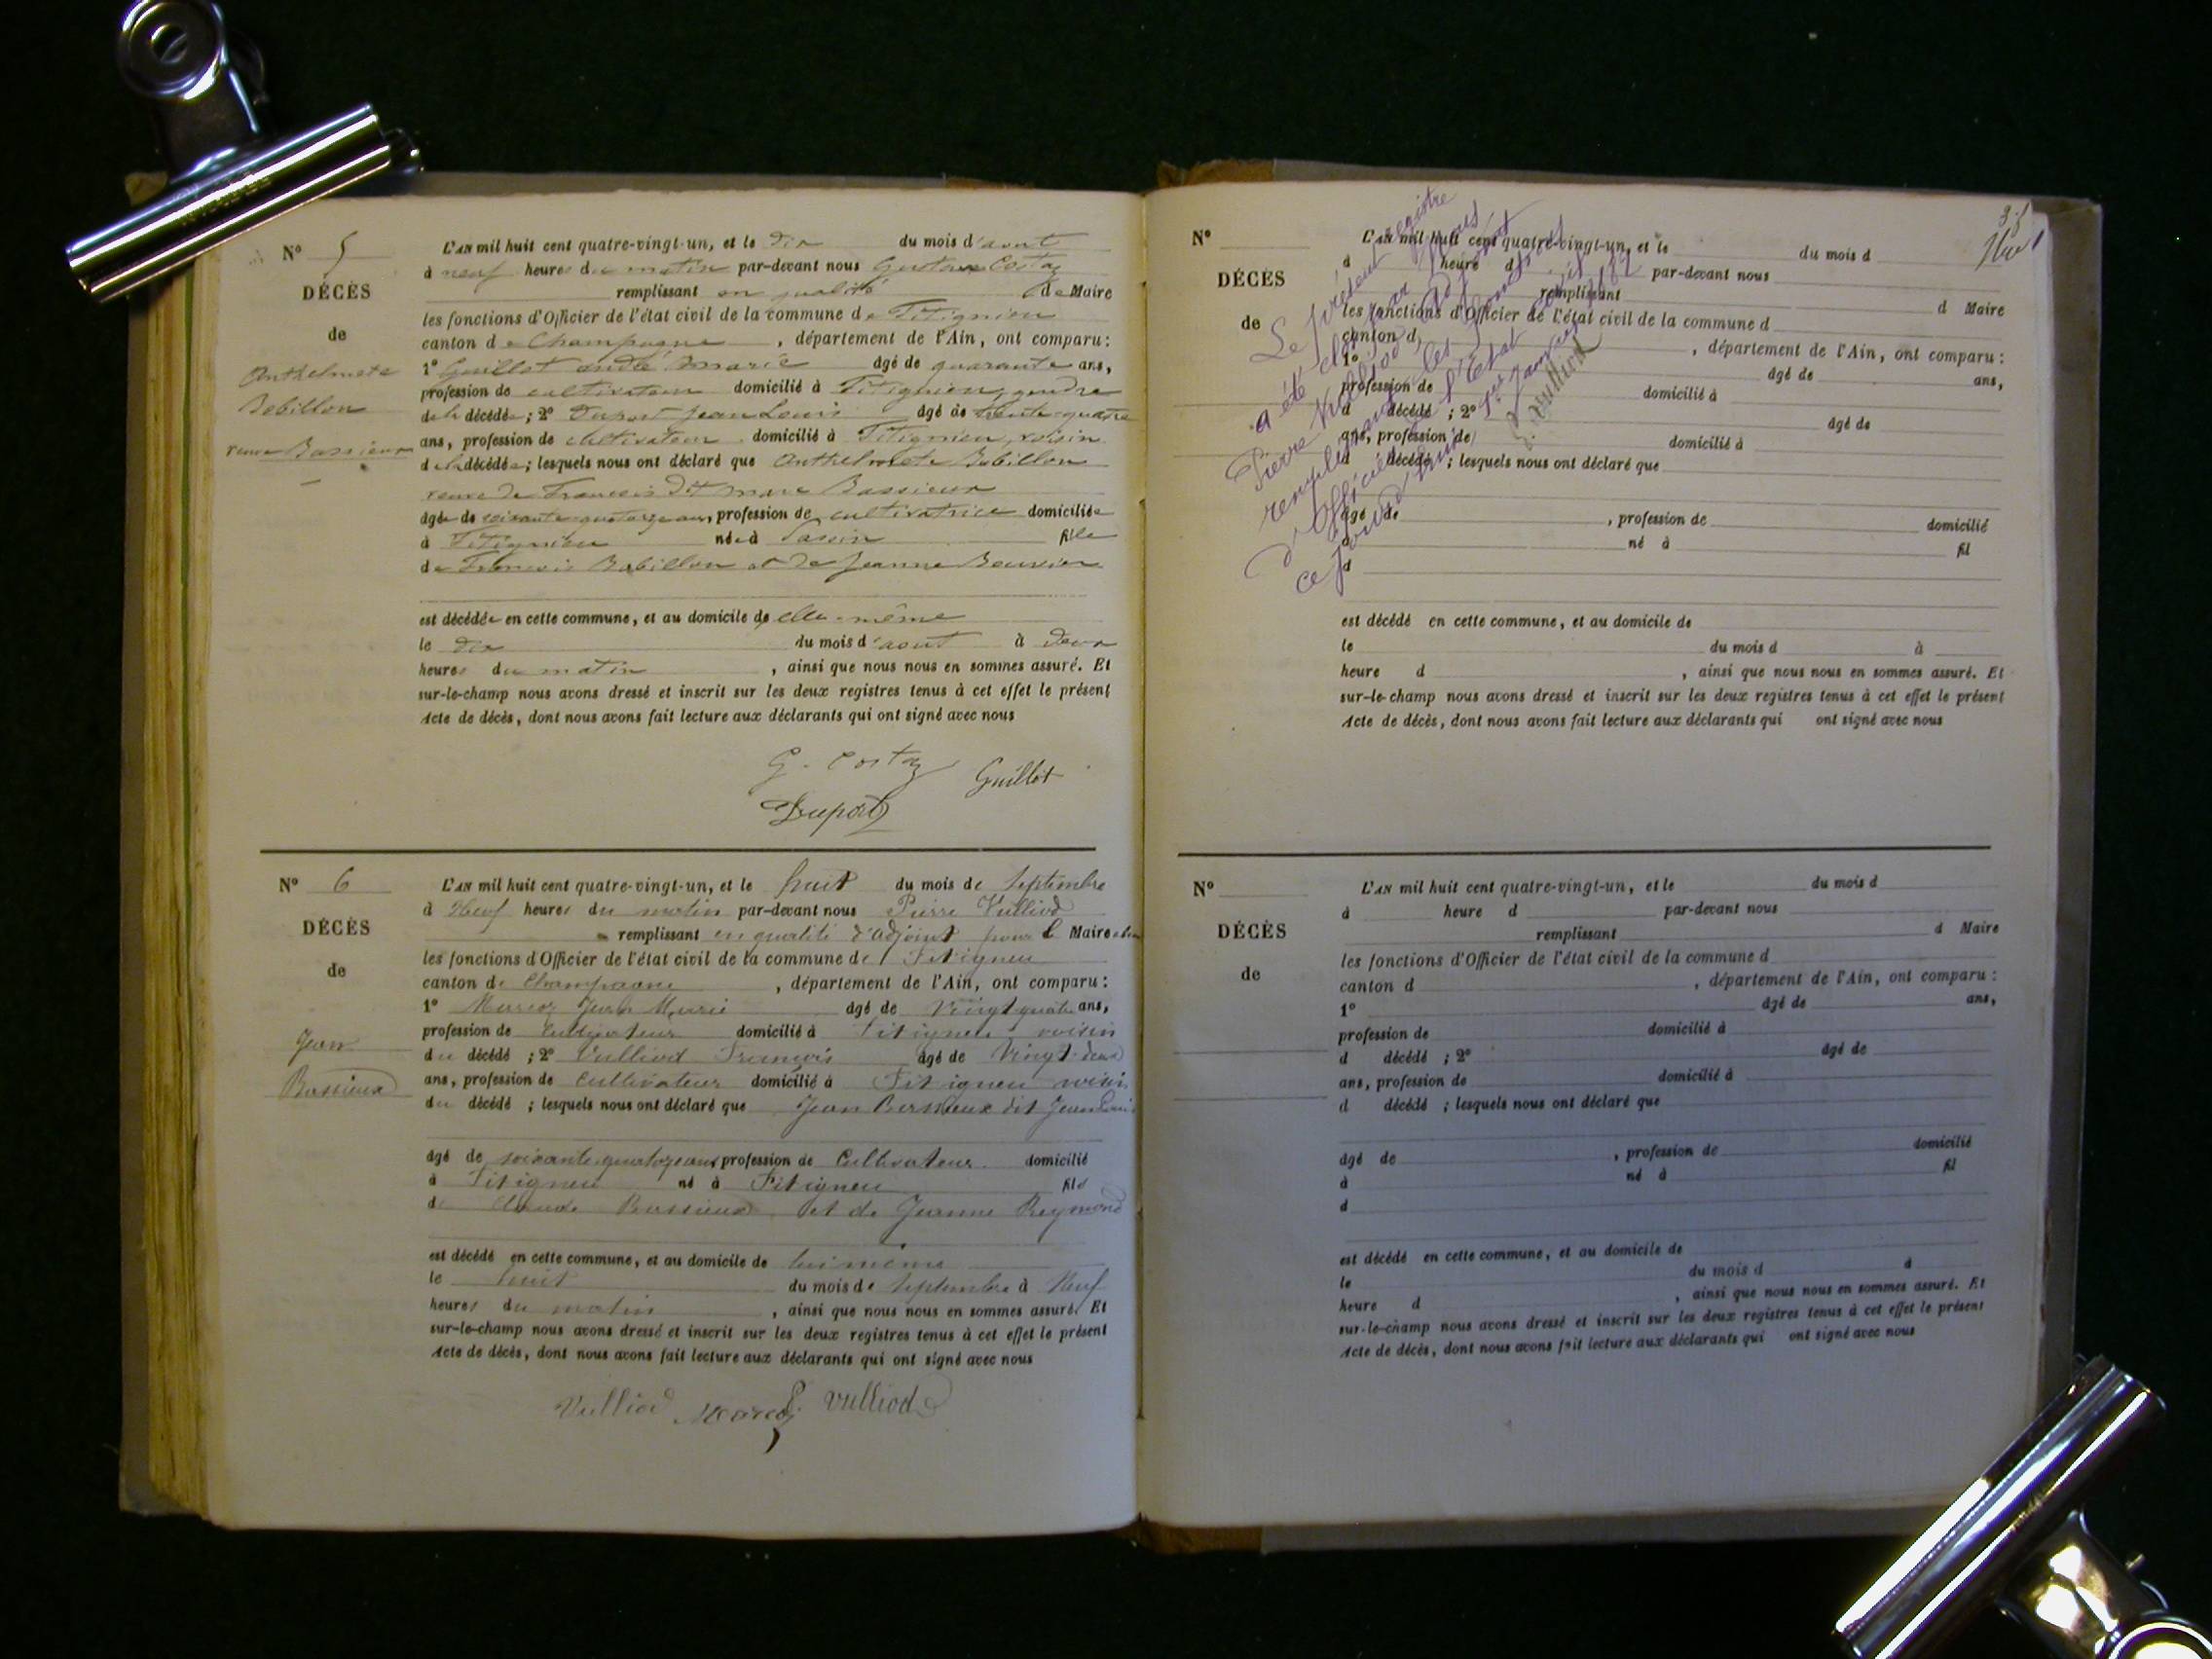 N° 5
DÉCÈS
de
Anthelmete
Bobillon
veuve Bassieux
L'AN mil huit cent quatre-vingt-un, et le dix du mois d'aout
à neuf heures du matin par-devant nous Gustave Costaz
remplissant en qualité de Maire
les fonctions d'Officier de l'état civil de la commune de Fitignieu
canton de Champagne, département de l'Ain, ont comparu :
1° Guillot andré marie âgé de quarante ans,
profession de cultivateur domicilié à Fitignieu, gendre
de la décédée ; 2° Duport Jean Louis âgé de trente-quatre
ans, profession de cultivateur domicilié à Fitignieu, voisin
de la décédée ; lesquels nous ont déclaré que Anthelmete Bobillon
veuve de Francois dit marc Bassieux
âgée de soixante quatorze ans, profession de cultivatrice domiciliée
à Fitignieu née à fille
de Francois Bobillon et de Jeanne Bouvier
est décédée en cette commune, et au domicile de elle-même
le dix du mois d'aout à deux
heures du matin, ainsi que nous nous en sommes assuré. Et
sur-le-champ nous avons dressé et inscrit sur les deux registres tenus à cet effet le présent
Acte de décès, dont nous avons fait lecture aux déclarants qui ont signé avec nous
G. Costaz Guillot
Duport
N° 6
DÉCÈS
de
Jean
Bassieux
L'AN mil huit cent quatre-vingt-un, et le huit du mois de Septembre
à Neuf heures du matin par-devant nous Pierre Vulliod
remplissant en qualité d'adjoint pour le Maire
les fonctions d'Officier de l'état civil de la commune de Fitigneu
canton de Champagne, département de l'Ain, ont comparu :
1° Marcoz Jean Marie âgé de Vingt quatre ans,
profession de Cultivateur domicilié à Fitigneu voisin
du décédé ; 2° Vulliod François âgé de Vingt deux
ans, profession de Cultivateur domicilié à Fitigneu voisin
du décédé ; lesquels nous ont déclaré que Jean Bassieux dit Jean Louis
âgé de soixante quatorze ans profession de Cultivateur domicilié
à Fitigneu né à Fitigneu fils
de Claude Bassieux et de Jeanne Reymond
est décédé en cette commune, et au domicile de lui même
le huit du mois de Septembre à Neuf
heures du matin, ainsi que nous nous en sommes assuré. Et
sur-le-champ nous avons dressé et inscrit sur les deux registres tenus à cet effet le présent
Acte de décès, dont nous avons fait lecture aux déclarants qui ont signé avec nous
Vulliod Marcoz P. Vulliod
Le présent registre
a été clos par nous
Pierre Vulliod, adjoint
remplissant les fonctions
d'officier de l'Etat civil
ce jourd'hui 1er janvier 1882
P. Vulliod
N°
DÉCÈS
de
L'AN mil huit cent quatre-vingt-un, et le du mois d
à heure d par-devant nous
remplissant d Maire
les fonctions d'Officier de l'état civil de la commune d
canton d, département de l'Ain, ont comparu :
1° âgé de ans,
profession de domicilié à
d décédé ; 2° âgé de
ans, profession de domicilié à
d décédé ; lesquels nous ont déclaré que
âgé de, profession de domicilié
à né à fil
d
est décédé en cette commune, et au domicile de
le du mois d à
heure d, ainsi que nous nous en sommes assuré. Et
sur-le-champ nous avons dressé et inscrit sur les deux registres tenus à cet effet le présent
Acte de décès, dont nous avons fait lecture aux déclarants qui ont signé avec nous
N°
DÉCÈS
de
L'AN mil huit cent quatre-vingt-un, et le du mois d
à heure d par-devant nous
remplissant d Maire
les fonctions d'Officier de l'état civil de la commune d
canton d, département de l'Ain, ont comparu :
1° âgé de ans,
profession de domicilié à
d décédé ; 2° âgé de
ans, profession de domicilié à
d décédé ; lesquels nous ont déclaré que
âgé de, profession de domicilié
à né à fil
d
est décédé en cette commune, et au domicile de
le du mois d à
heure d, ainsi que nous nous en sommes assuré. Et
sur-le-champ nous avons dressé et inscrit sur les deux registres tenus à cet effet le présent
Acte de décès, dont nous avons fait lecture aux déclarants qui ont signé avec nous